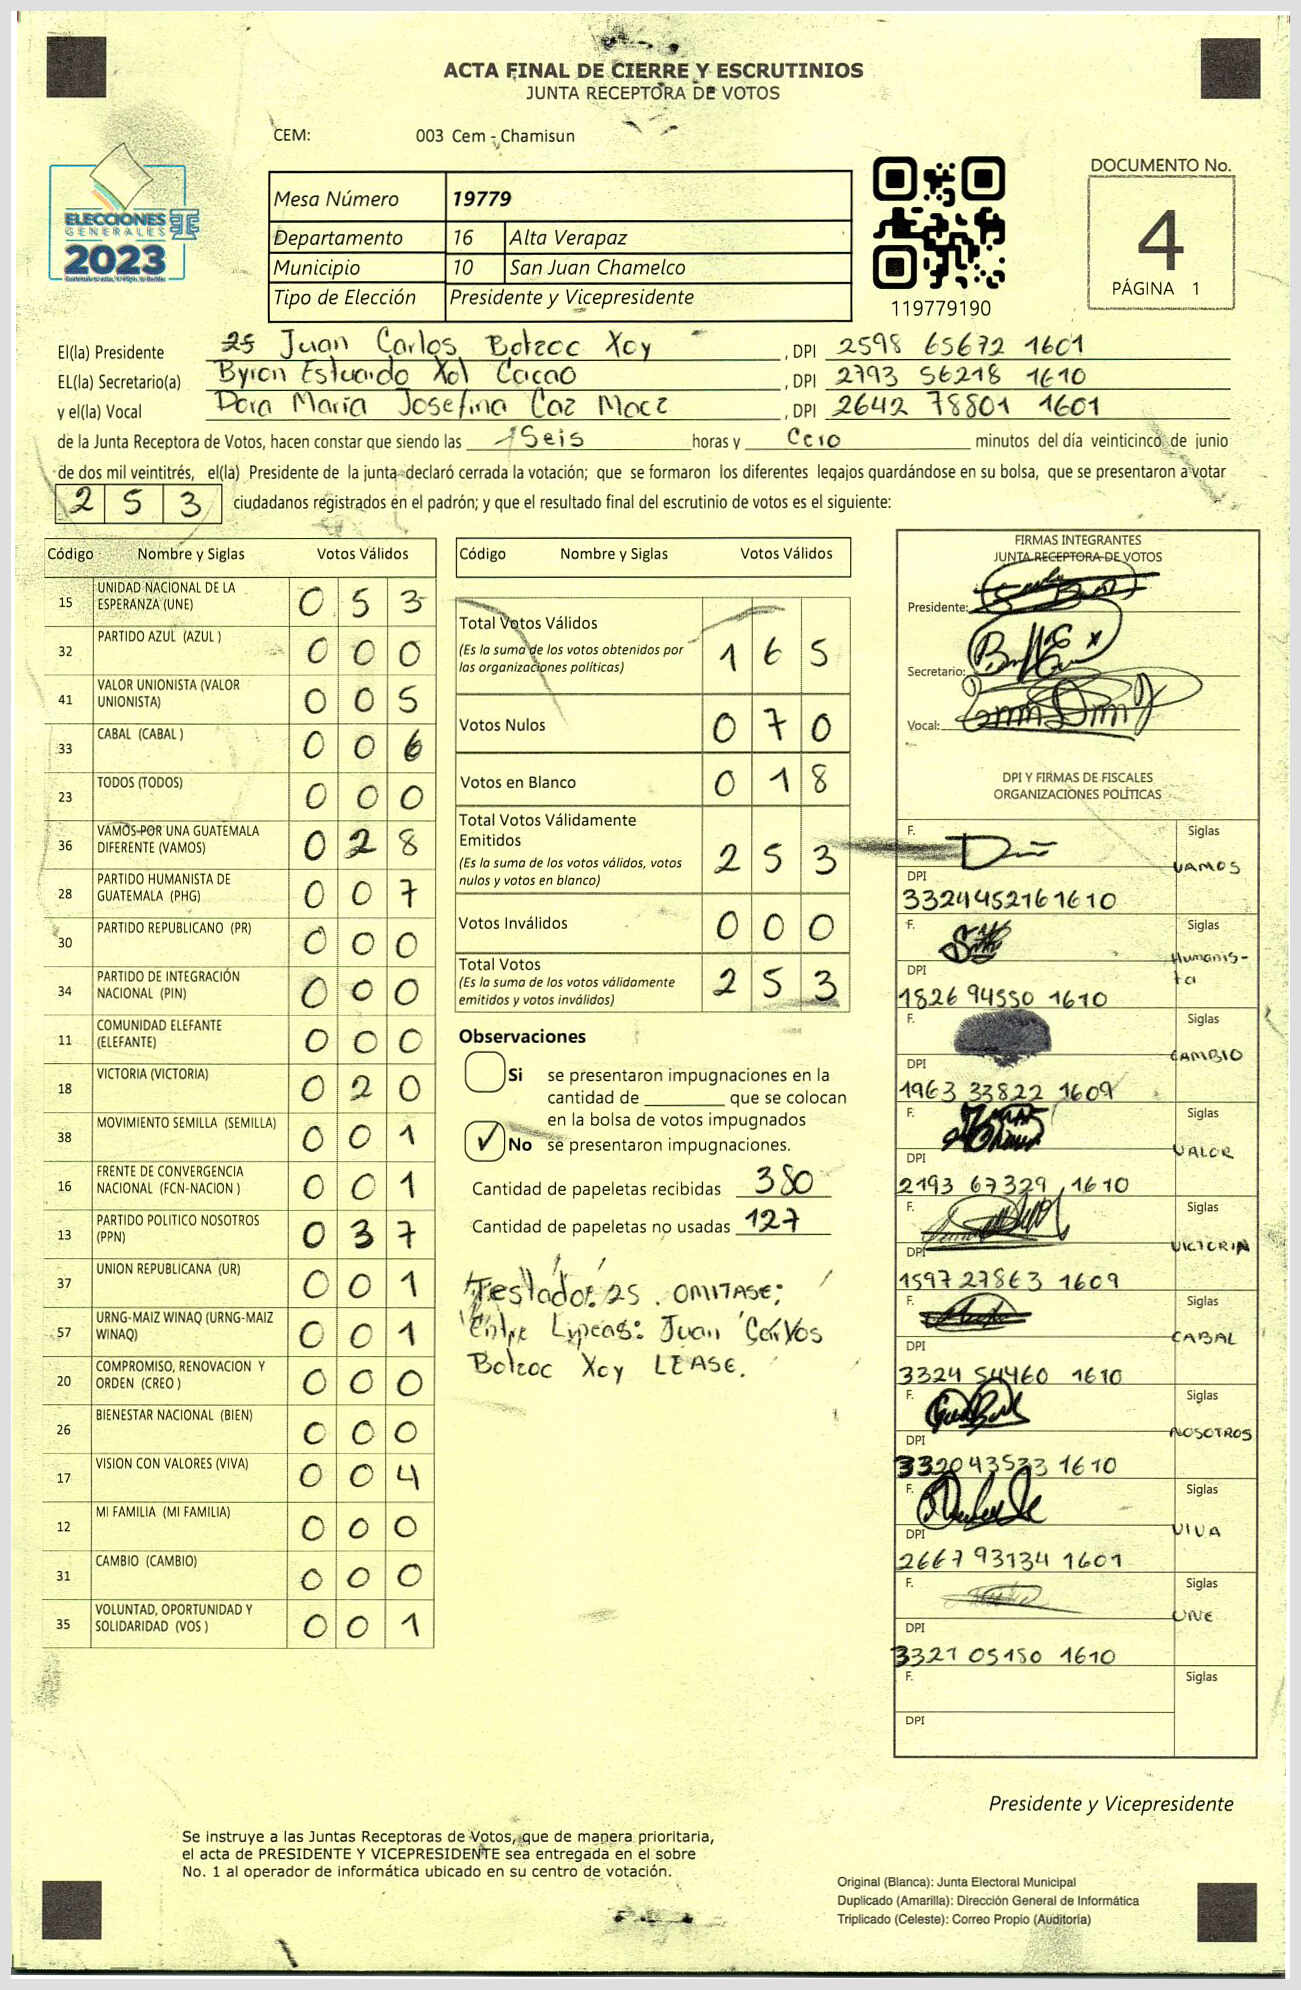 ACTA FINAL DE CIERRE Y ESCRUTINIOS
JUNTA RECEPTORA DE VOTOS
CEM: 003 Cem - Chamisun
ELECCIONES
GENERALES
2023
Mesa Número 19779
Departamento 16 Alta Verapaz
Municipio 10 San Juan Chamelco
Tipo de Elección Presidente y Vicepresidente
119779190
DOCUMENTO No.
4
PÁGINA 1
El(la) Presidente 25 Juan Carlos Botzoc Xoy , DPI 2598 65672 1601
EL(la) Secretario(a) Byron Estuardo Xol Cacao , DPI 2793 56218 1610
y el(la) Vocal Dora María Josefina Caz Macz , DPI 2642 78801 1601
de la Junta Receptora de Votos, hacen constar que siendo las Seis horas y Cero minutos del día veinticinco de junio
de dos mil veintitrés, el(la) Presidente de la junta declaró cerrada la votación; que se formaron los diferentes legajos guardándose en su bolsa, que se presentaron a votar
253 ciudadanos registrados en el padrón; y que el resultado final del escrutinio de votos es el siguiente:
Código Nombre y Siglas Votos Válidos
15 UNIDAD NACIONAL DE LA ESPERANZA (UNE) 0 5 3
32 PARTIDO AZUL (AZUL ) 0 0 0
41 VALOR UNIONISTA (VALOR UNIONISTA) 0 0 5
33 CABAL (CABAL ) 0 0 6
23 TODOS (TODOS) 0 0 0
36 VAMOS POR UNA GUATEMALA DIFERENTE (VAMOS) 0 2 8
28 PARTIDO HUMANISTA DE GUATEMALA (PHG) 0 0 7
30 PARTIDO REPUBLICANO (PR) 0 0 0
34 PARTIDO DE INTEGRACIÓN NACIONAL (PIN) 0 0 0
11 COMUNIDAD ELEFANTE (ELEFANTE) 0 0 0
18 VICTORIA (VICTORIA) 0 2 0
38 MOVIMIENTO SEMILLA (SEMILLA) 0 0 1
16 FRENTE DE CONVERGENCIA NACIONAL (FCN-NACION ) 0 0 1
13 PARTIDO POLITICO NOSOTROS (PPN) 0 3 7
37 UNION REPUBLICANA (UR) 0 0 1
57 URNG-MAIZ WINAQ (URNG-MAIZ WINAQ) 0 0 1
20 COMPROMISO, RENOVACION Y ORDEN (CREO ) 0 0 0
26 BIENESTAR NACIONAL (BIEN) 0 0 0
17 VISION CON VALORES (VIVA) 0 0 4
12 MI FAMILIA (MI FAMILIA) 0 0 0
31 CAMBIO (CAMBIO) 0 0 0
35 VOLUNTAD, OPORTUNIDAD Y SOLIDARIDAD (VOS ) 0 0 1
Código Nombre y Siglas Votos Válidos
Total Votos Válidos 1 6 5
(Es la suma de los votos obtenidos por
las organizaciones políticas)
Votos Nulos 0 7 0
Votos en Blanco 0 1 8
Total Votos Válidamente
Emitidos 2 5 3
(Es la suma de los votos válidos, votos
nulos y votos en blanco)
Votos Inválidos 0 0 0
Total Votos 2 5 3
(Es la suma de los votos válidamente
emitidos y votos inválidos)
Observaciones
Si se presentaron impugnaciones en la
cantidad de ________ que se colocan
en la bolsa de votos impugnados
✓ No se presentaron impugnaciones.
Cantidad de papeletas recibidas 380
Cantidad de papeletas no usadas 127
Testado: 25. OMITASE;
Entre Lineas: Juan Carlos
Botzoc Xoy LEASE.
FIRMAS INTEGRANTES
JUNTA RECEPTORA DE VOTOS
Presidente:
Secretario:
Vocal:
DPI Y FIRMAS DE FISCALES
ORGANIZACIONES POLÍTICAS
F. Siglas VAMOS
DPI 3324452161610
F. Siglas Humanis-ta
DPI 1826 94550 1610
F. Siglas CAMBIO
DPI 1963 33822 1609
F. Siglas VALOR
DPI 2193 67329 1610
F. Siglas VICTORIA
DPI 1597 27863 1609
F. Siglas CABAL
DPI 3324 54460 1610
F. Siglas NOSOTROS
DPI 332043533 1610
F. Siglas VIVA
DPI 2667 93134 1601
F. Siglas UNE
DPI 3321 05180 1610
F. Siglas
DPI
Presidente y Vicepresidente
Se instruye a las Juntas Receptoras de Votos, que de manera prioritaria,
el acta de PRESIDENTE Y VICEPRESIDENTE sea entregada en el sobre
No. 1 al operador de informática ubicado en su centro de votación.
Original (Blanca): Junta Electoral Municipal
Duplicado (Amarilla): Dirección General de Informática
Triplicado (Celeste): Correo Propio (Auditoría)